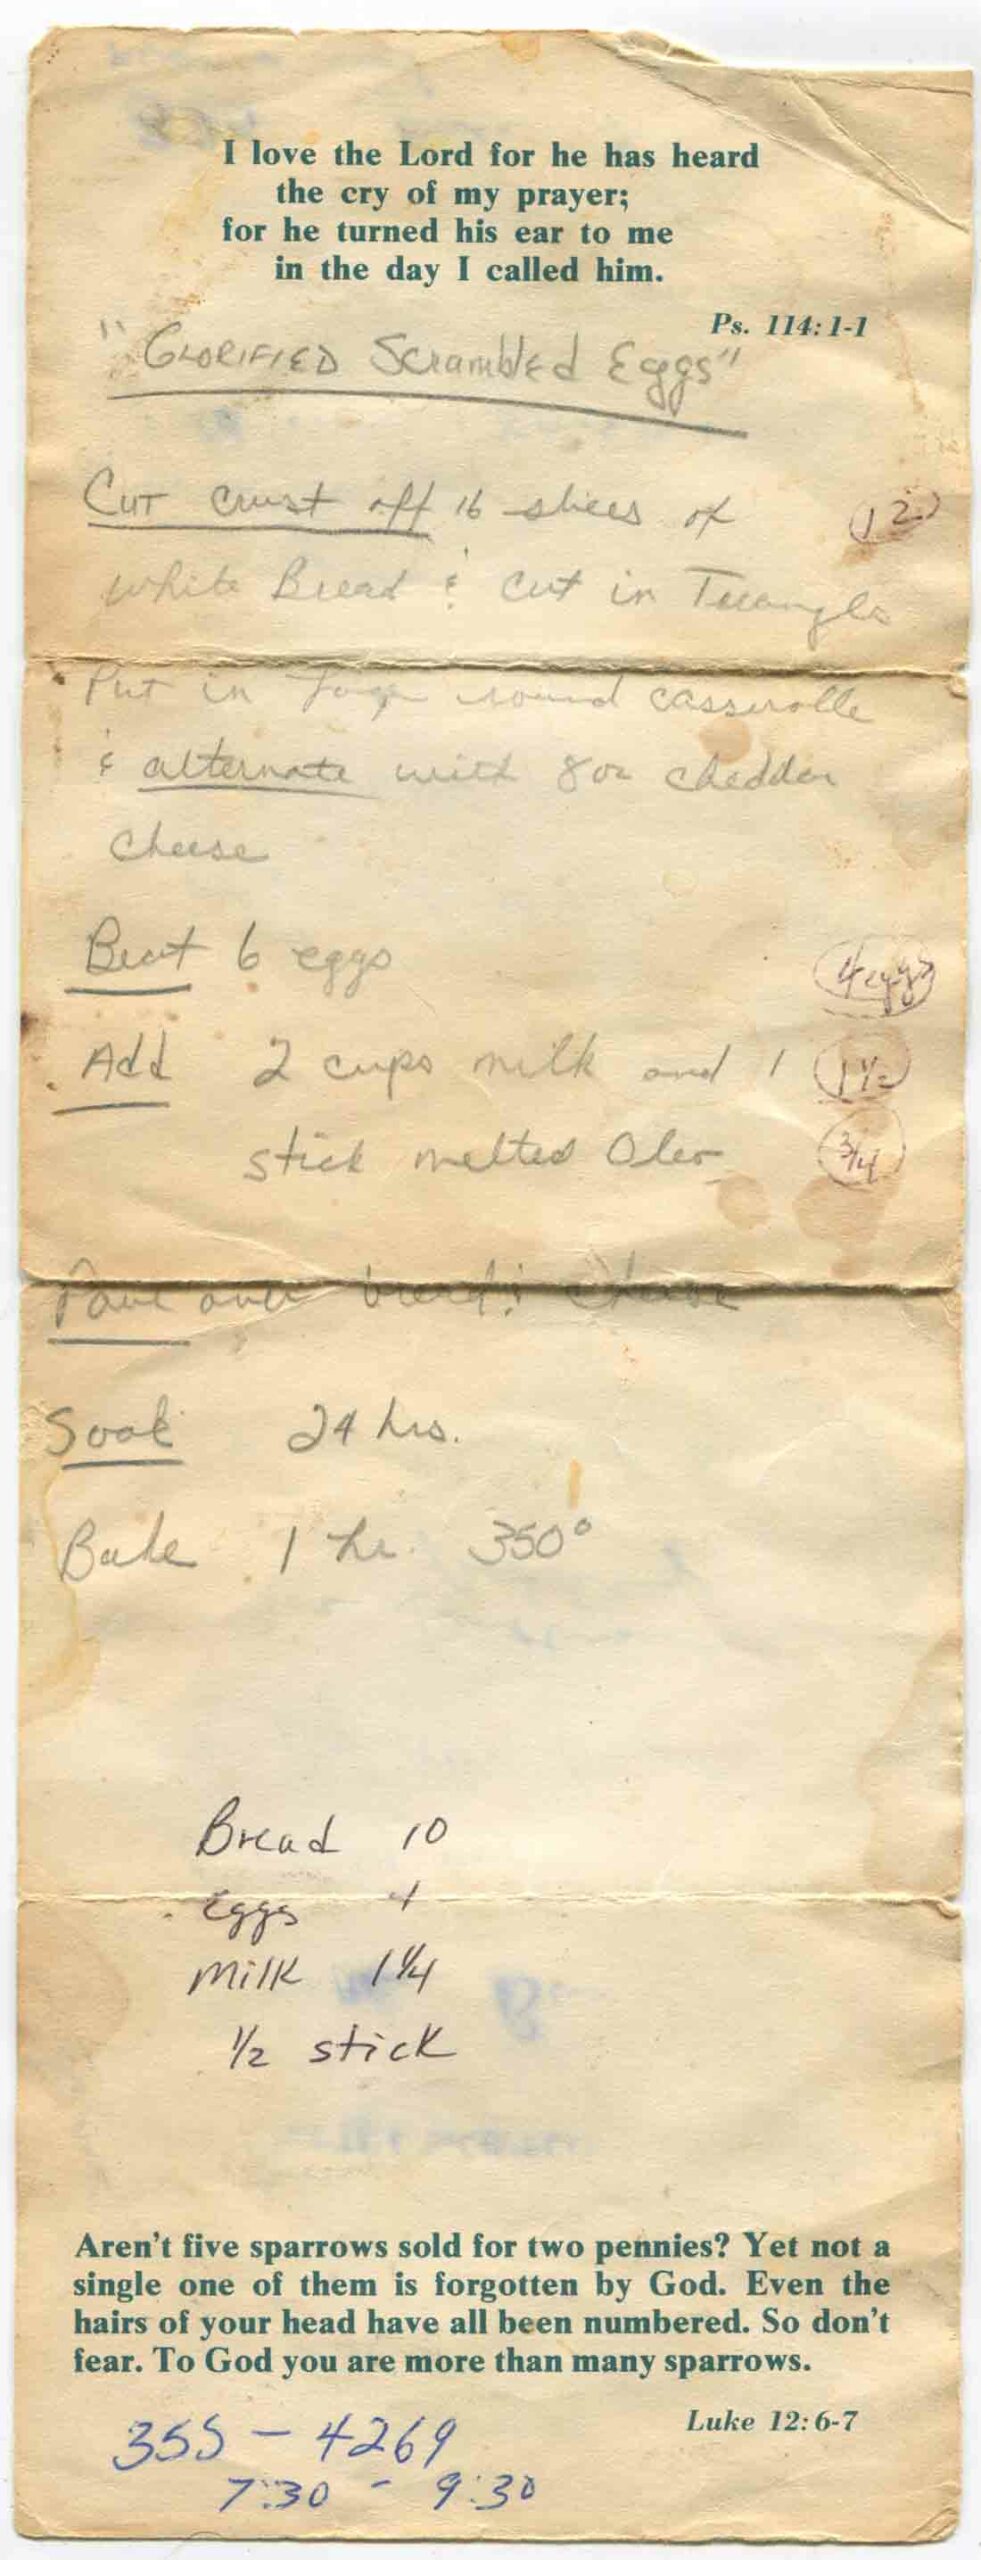 I love the Lord for he has heard
the cry of my prayer;
for he turned his ear to me
in the day I called him.
Ps. 114:1-1
"GLORIFIED Scrambled Eggs"
Cut crust off 16 slices of (12)
white Bread & cut in Triangles
Put in large round casserolle
& alternate with 8 oz chedder
cheese
Beat 6 eggs 4 eggs
Add 2 cups milk and 1 1 1/2
stick melted Oleo 3/4
Pour over bread & cheese
Soak 24 hrs.
Bake 1 hr. 350°
Bread 10
Eggs 4
Milk 1 1/4
1/2 stick
Aren't five sparrows sold for two pennies? Yet not a
single one of them is forgotten by God. Even the
hairs of your head have all been numbered. So don't
fear. To God you are more than many sparrows.
Luke 12:6-7
355-4269
7:30 - 9:30